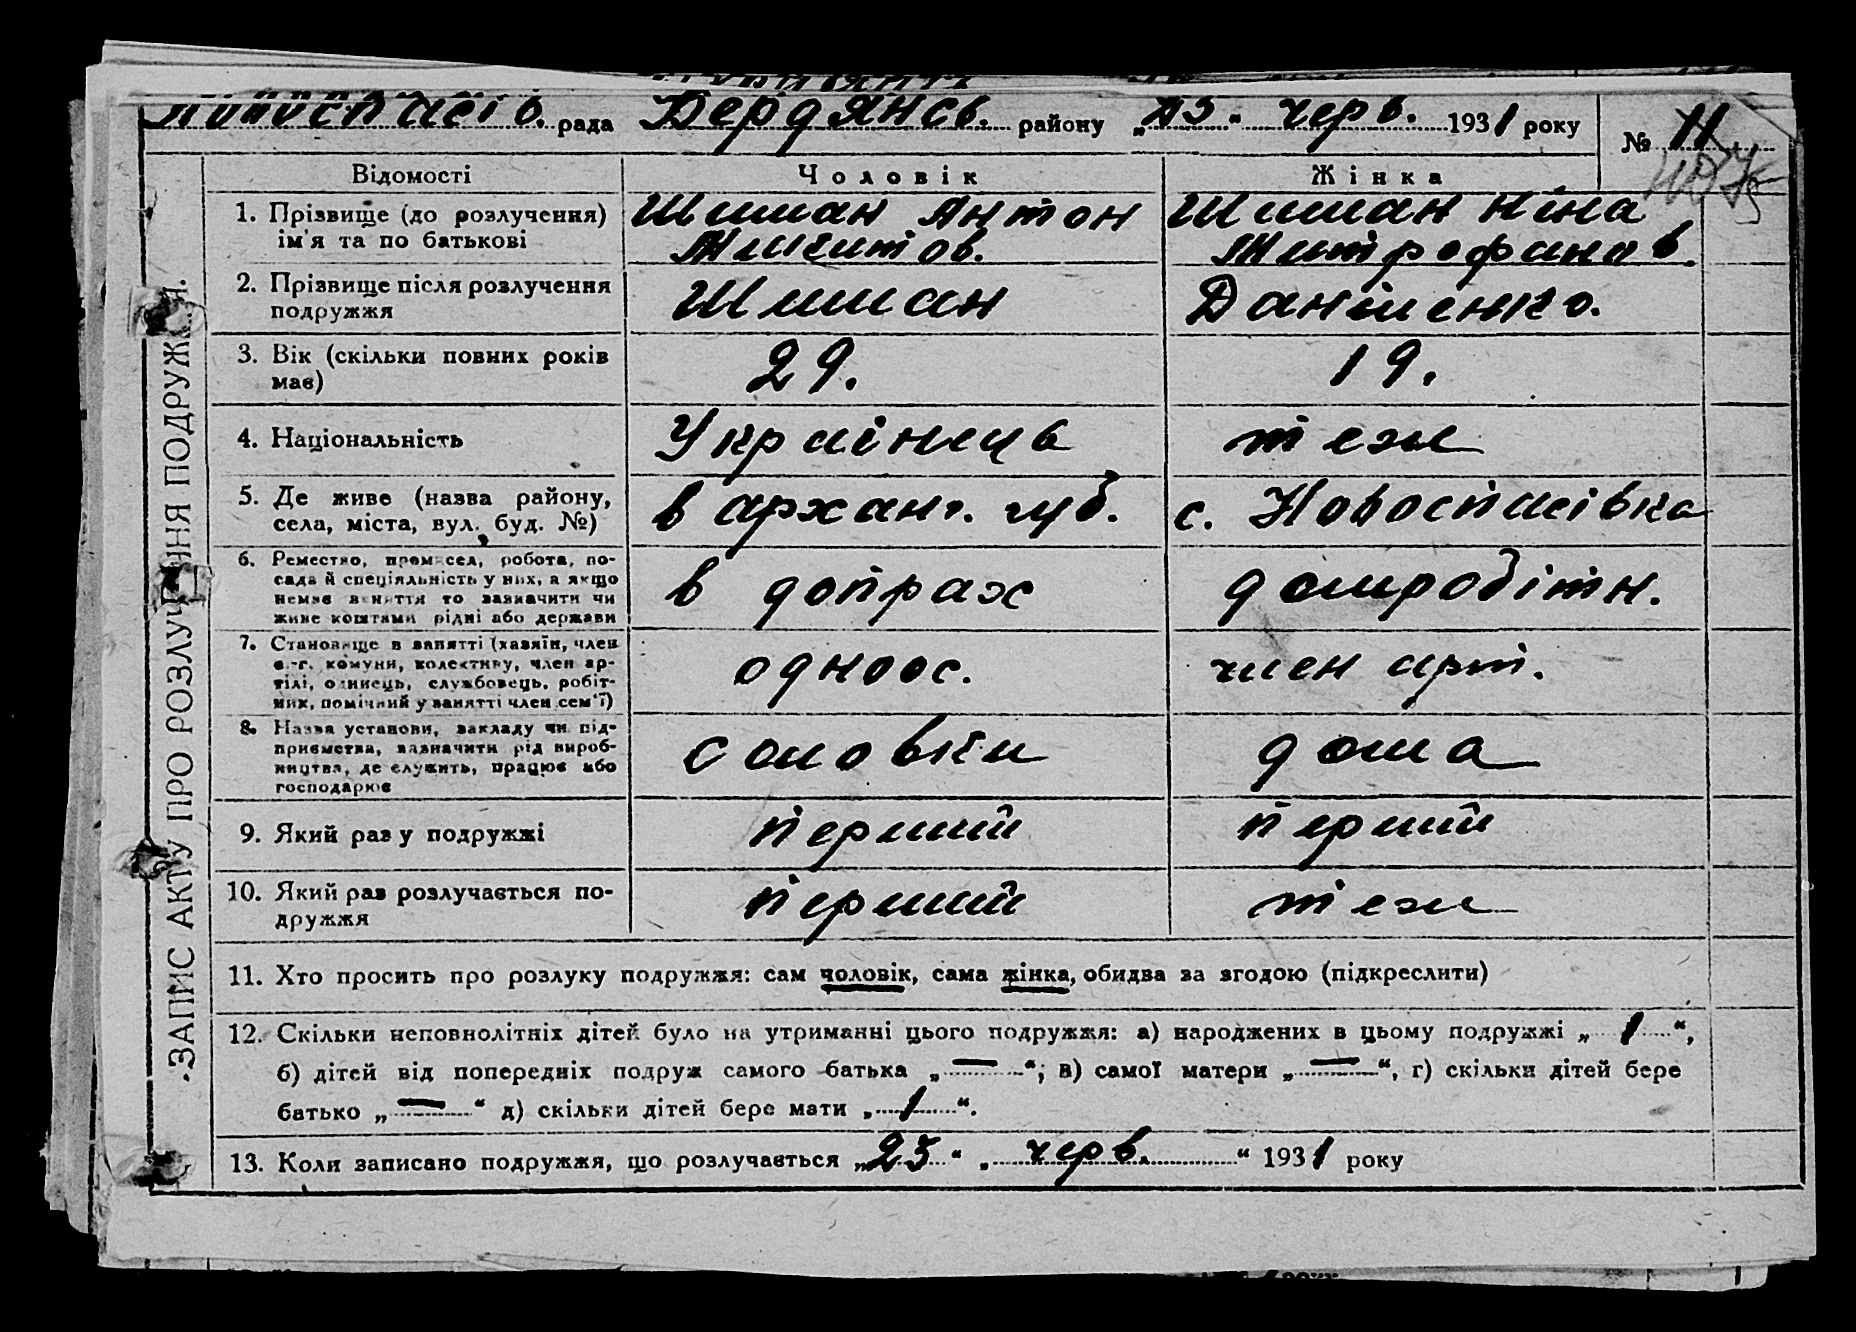 Новоспасів. рада Бердянсь. району „23“ черв. 1931 року № 11
Відомості Чоловік Жінка
1. Прізвище (до розлучення) ім'я та по батькові
Шиман Антон Шиман Ніна
Микитов. Митрофанов.
2. Прізвище після розлучення подружжя
Шиман Даніленко.
3. Вік (скільки повних років має)
29. 19.
4. Національність Украінець теж
5. Де живе (назва району, села, міста, вул. буд. №)
в арханг. губ. с. Новоспасівка
6. Ремество, промисел, робота, по-
сада й спеціяльність у них, а якщо
немає заняття то зазначити чи
живе коштами рідні або держави
в допрах домробітн.
7. Становище в занятті (хазяїн, член
с.-г. комуни, колективу, член ар-
тілі, одинець, службовець, робіт-
ник, помічний у занятті член сем'ї)
одноос. член арт.
8. Назва установи, закладу чи під-
приємства, зазначити рід вироб-
ництва, де служить, працює або
господарює
соловки дома
9. Який раз у подружжі перший перший
10. Який раз розлучається по-
дружжя
перший теж
11. Хто просить про розлуку подружжя: сам чоловік, сама жінка, обидва за згодою (підкреслити)
12. Скільки неповнолітніх дітей було на утриманні цього подружжя: а) народжених в цьому подружжі „ 1 “,
б) дітей від попередніх подруж самого батька „ — “; в) самої матери „ — “, г) скільки дітей бере
батько „ — “ д) скільки дітей бере мати „ 1 “.
13. Коли записано подружжя, що розлучається „23“ „ черв. “ 1931 року
ЗАПИС АКТУ ПРО РОЗЛУЧЕННЯ ПОДРУЖЖЯ.